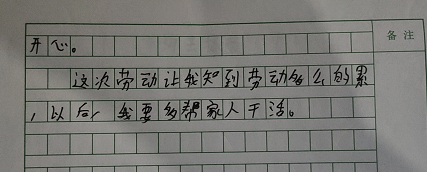 开心。
备注
这次劳动让我知到劳动多么的累
，以后，我要多帮家人干活。